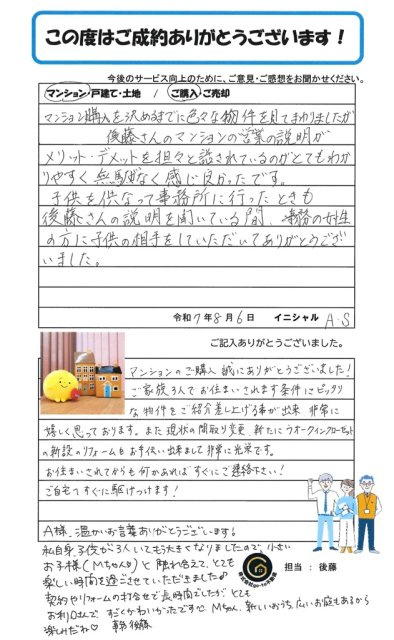 この度はご成約ありがとうございます！
今後のサービス向上のために、ご意見・ご感想をお聞かせください。
マンション・戸建て・土地 / ご購入・ご売却
マンション購入を決めるまでに色々な物件を見てまわりましたが
後藤さんのマンションの営業の説明が
メリット・デメットを担々と話されているのがとてもわか
りやすく無駄なく感じ良かったです。
子供を供なって事務所に行ったときも
後藤さんの説明を聞いている間、事務の女性
の方に子供の相手をしていただいてありがとうござ
いました。
令和7年8月6日 イニシャル A.S
ご記入ありがとうございました。
マンションのご購入誠にありがとうございました！
ご家族3人でお住まいされます条件にピッタリ
な物件をご紹介差し上げる事が出来 非常に
嬉しく思っております。また現状の間取り変更 新たにウオークインクローゼット
の新設のリフォームもお手伝い出来まして非常に光栄です。
お住まいされてからも何かあれば すぐにご連絡下さい！
ご自宅へすぐに駆けつけます！
担当：後藤
A様、温かいお言葉ありがとうございます！
私自身、子供が3人いてもう大きくなりましたので、小さい
お子様(Mちゃん)と触れ合えて、とても
楽しい時間を過ごさせていただきました♪
契約やリフォームの打合せで長時間でしたが とても
お利口さんで すごくかわいかったです♡ Mちゃん、新しいおうち、広いお庭もあるから
楽しみだね♡ 後藤